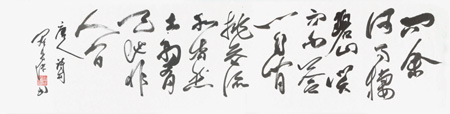 问余
何事栖
碧山笑
而不答
心自闲
桃花流
水杳然
去别有
天地非
人间
唐人诗